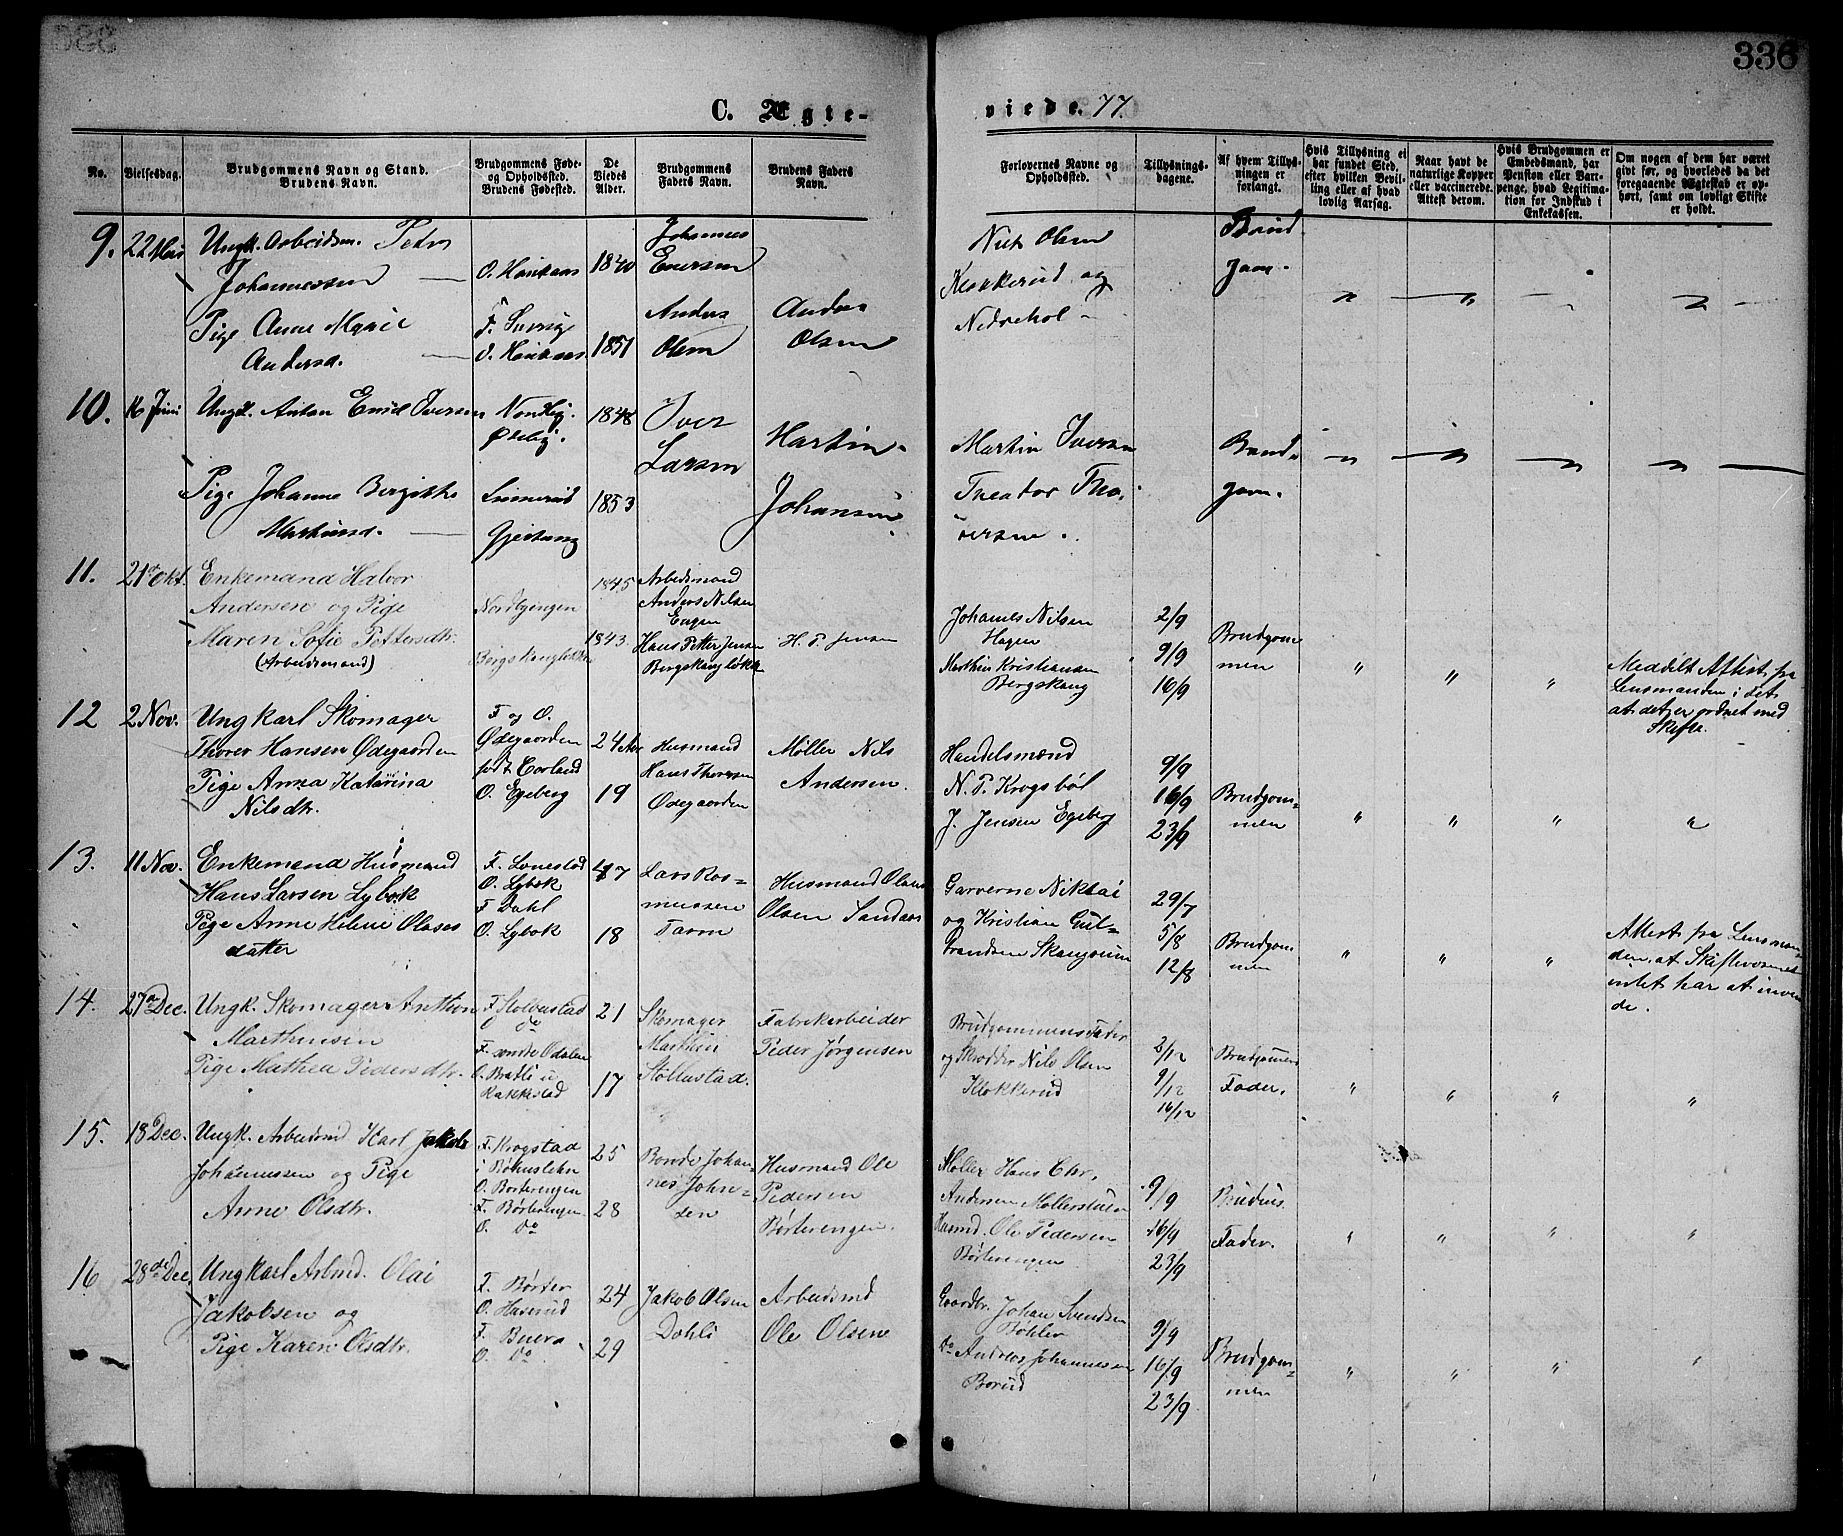 336
C. Ægte-
viede. 77.
No.
Vielsesdag.
Brudgommens Navn og Stand.
Brudens Navn.
Brudgommens Føde-
og Opholdssted.
Brudens Fødested.
De
Viedes
Alder.
Brudgommens
Faders Navn.
Brudens Faders
Navn.
Forlovernes Navne og
Opholdssted.
Tillysnings-
dagene.
Af hvem Tillys-
ningen er
forlangt.
Hvis Tillysning ei
har fundet Sted,
efter hvilken Bevil-
ling eller af hvad
lovlig Aarsag.
Naar havt de
naturlige Kopper
eller vaccinerede.
Attest derom.
Hvis Brudgommen er
Embedsmand, har
Pension eller Vart-
penge, hvad Legitima-
tion for Indskud i
Enkekassen.
Om nogen af dem har været
givt før, og hvorledes da det
foregaaende Ægteskab er op-
hørt, samt om lovligt Skifte
er holdt.
9.
22
Ungk. Arbeidsm. Peder
Johannessen
O.
1840
Johannes
Eversen
Pige Anne Marie
Andersd.
F. Sverige
O.
1851
Anders
Olsen
Anders
Olsen
Niels Olsen
Klokkerud og
Nedrehol
Brud
gom.
10.
16 Juni
Ungk. Anton Emil Iversen
1848
Iver
Larsen
Pige Johanne Bergitthe
Martinsd.
1853
Martin
Johansen
Martin Iversen
Theodor
Brud
gom.
11.
21 Okt.
Enkemand Halvor
Andersen og Pige
Maren Sofie Pettersdtr.
(Arbeidsmand)
Nordbyengen
Bergskaugløkken
1845
1843.
Arbeidsmand
Anders Nilsen
Engen
Hans Petter Jensen
Bergskaugløkk
H. P. Jensen
Johannes Nilsen
Hagen
Marthin Kristiansen
Bergskaug
2/9
9/9
16/9
Brudgom
men
" " "
Meddelt Attest fra
Lensmanden i det
at det er ordnet med
Skifte.
12
2 Nov.
Ungkarl Skomager
Thorer Hansen Ødegaarden
Pige Anna Katarina
Nilsdtr.
F og O.
Ødegaarden
født
O. Egeberg
24 Aar
19
Husmand
Hans Thoresen
Ødegaarden
Møller Nils
Andersen.
Handelsmænd
N. P. Krogsbøl
J. Jensen Egeberg
9/9
16/9
23/9
Brudgom=
men
" " " "
13.
11 Nov.
Enkemand Husmand
Hans Larsen Lybæk
Pige Anne Helene Olases
datter
F. Lonestad
O. Lybæk
F Dahl
O. Lybæk
47
18
Lars Ras=
mussen
Husmand Olaus
Olsen Sandaas
Garverne Nikolai
og Kristian Gul=
brandsen
29/7
5/8
12/8
Brudgom
men
" " "
Attest fra Lensman=
den, at Skiftevæsenet
intet har at inven
de.
14.
27de Dec.
Ungk. Skomager Anthon
Marthinsen
Pige Mathea Pedersdtr.
F
O do
F. søndre Odalen
O.
21
17
Skomager
Marthin
Fabrikarbeider
Peder Jørgensen
Brudgommens Fader
og Skrædder Nils Olsen
Klokkerud
2/12
9/12
16/12
Brudgommens
Fader.
" " " "
15.
18 Dec.
Ungk. Arbeidsmd Karl Jakob
Johannessen og Pige
Anne Olsdtr.
F. Krogstad
i Bohuslehn
O. Børterengen
F. Børterengen
O. Do
25
28
Bonde Johan=
nes John=
sen
Husmand Ole
Pedersen
Børterengen.
Møller Hans Chr.
Andersen Møllerstuen
Husmd. Ole Pedersen
Børterengen
9/9
16/9
23/9
Brudens
Fader.
" " " "
16
28de Dec.
Ungkarl Arbmd. Olai
Jakobsen og
Pige Karen Olsdtr.
F. Børter
O. Haserud
F.
O. Do.
24
29
Jakob Olsen
Dahli
Arbeidsmd
Ole Olsen
Gaardbr. Johan Svendsen
Bøhler
Do Andreas Johannessen
Borud
9/9
16/9
23/9
Brudgom=
men
" " " "